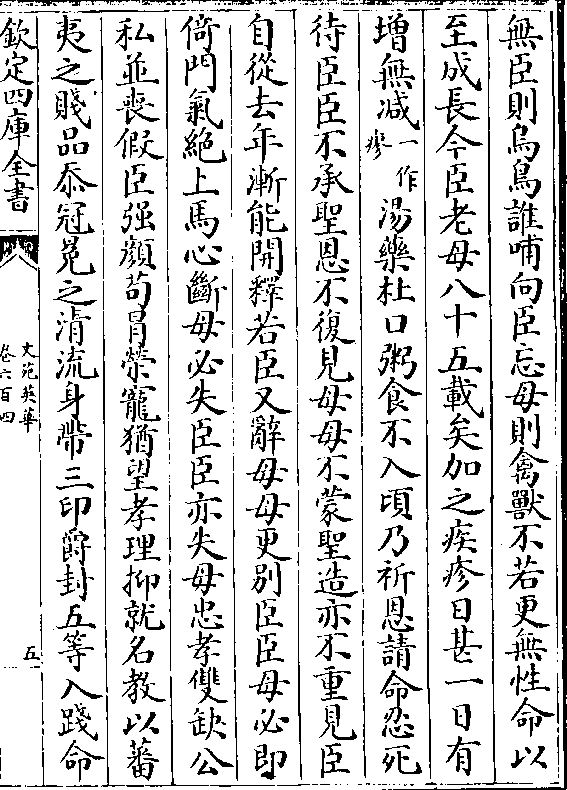 無臣則烏鳥誰哺向臣忘母則禽獸不若更無性命以
至成長今臣老母八十五載矣加之疾疹日甚一日有
增無减一作瘳湯藥杜口粥食不入頃乃祈恩請命忍死
待臣臣不承聖恩不復見母母不蒙聖造亦不重見臣
自從去年漸能開釋若臣又辭母母更别臣臣母必即
倚門氣絶上馬心斷母必失臣臣亦失母忠孝雙缺公
私並喪假臣强顔苟冒榮寵猶望孝理抑就名教以蕃
夷之賤品忝冠冕之清流身帶三印爵封五等入踐命
欽定四庫全書
文苑英華
卷六百四
五